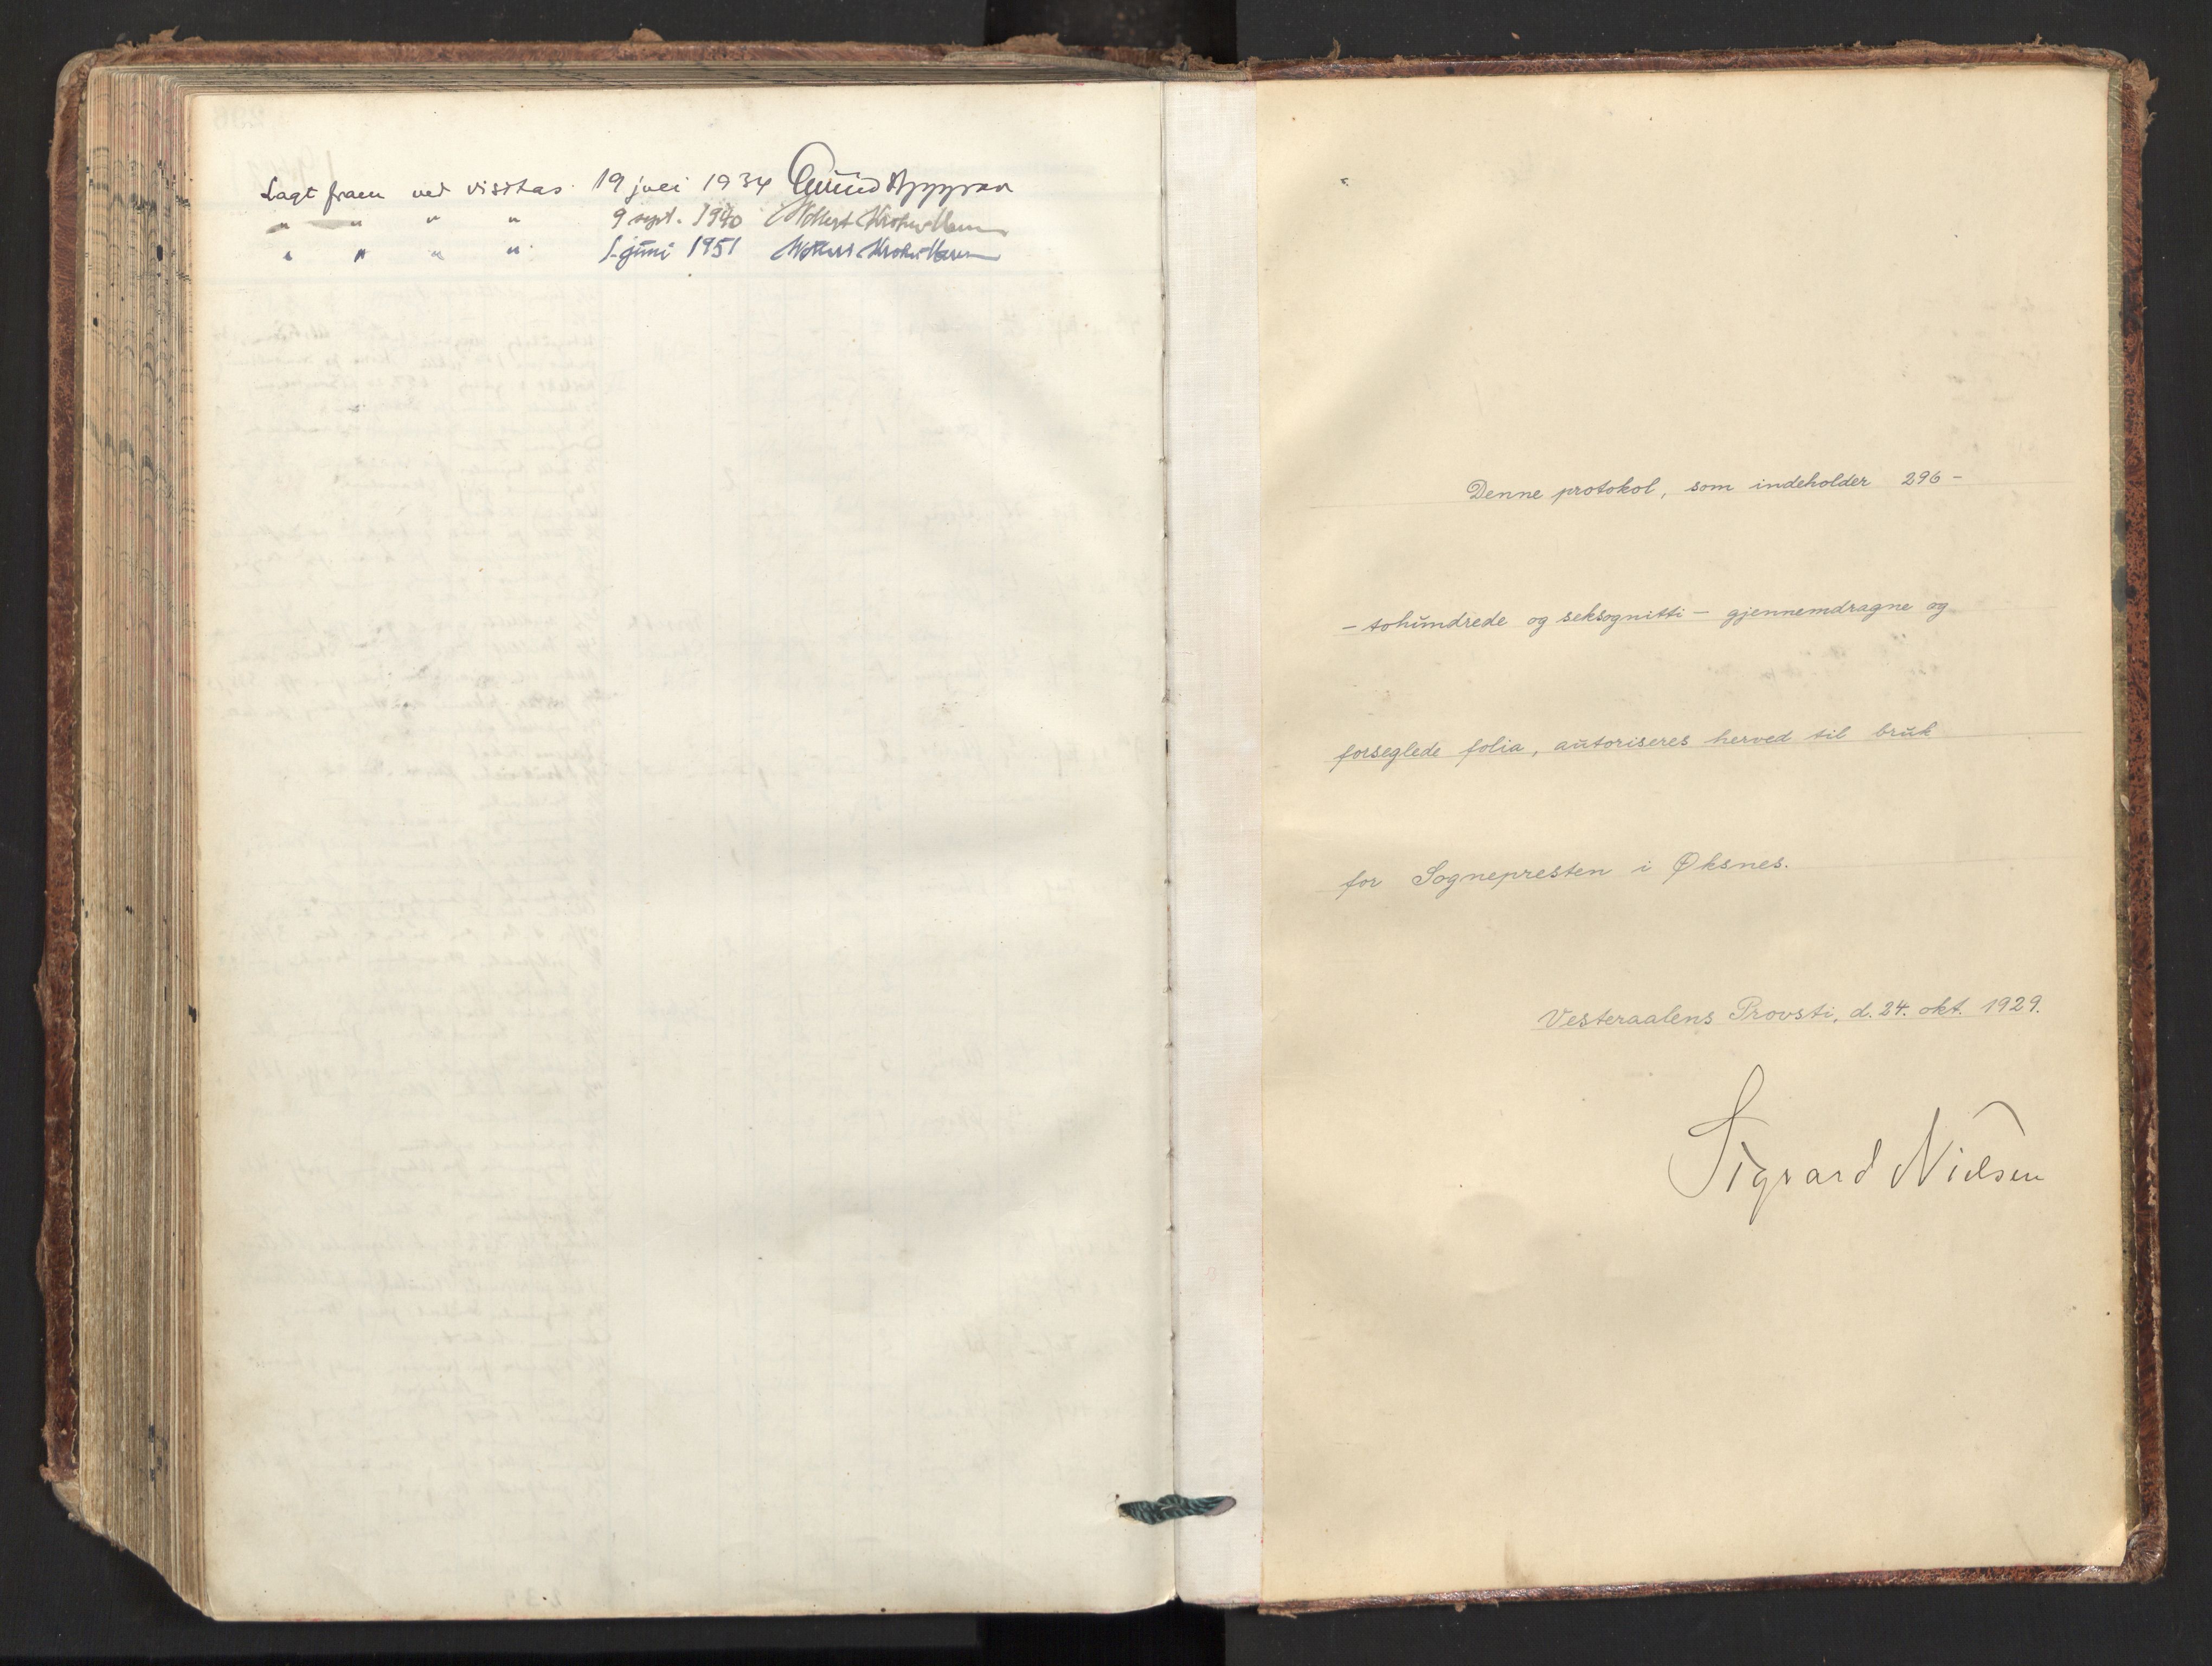 Lagt fram ved visitas 19 juli 1934 Eivind Berggrav
" " " " 9 sept. 1940 Wollert Krohn-Hansen
" " " " 1. juni 1951 Wollert Krohn-Hansen
Denne protokol, som indeholder 296 -
- tohundrede og seksognitti - gjennemdragne og
forseglede folia, autoriseres herved til bruk
for Sognepresten i Øksnes.
Vesteraalens Provsti, d. 24. okt. 1929.
Sigvard Nielsen